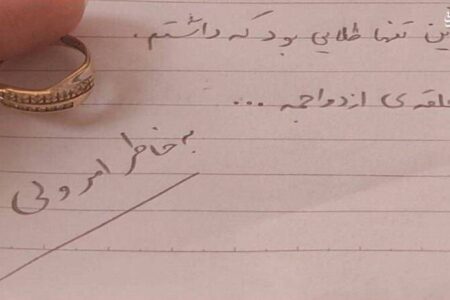 ین تنها طلایی بود که داشتم.
لقه‌ی ازدواجمه ...
به خاطر امر ولی